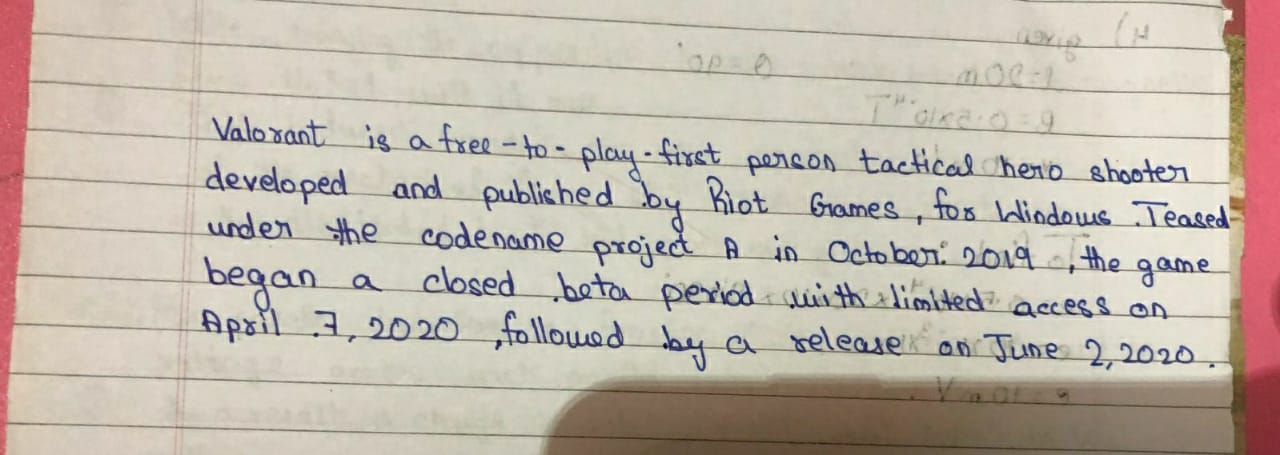 Valorant is a free-to-play-first person tactical hero shooter
developed and published by Riot Games, for Windows. Teased
under the codename project A in October 2019, the game
began a closed beta period with limited access on
April 7, 2020, followed by a release on June 2, 2020.